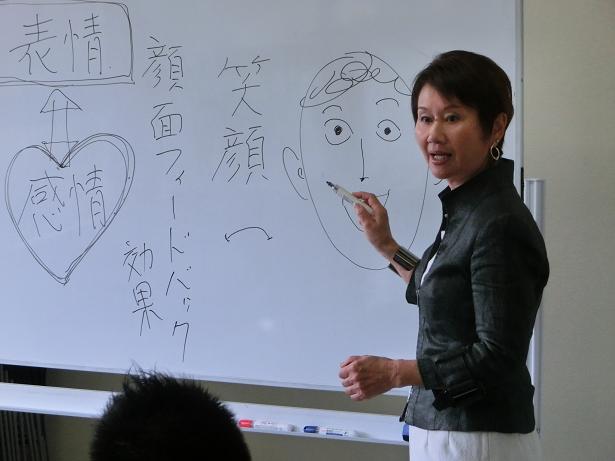 表情
感情
顔面フィードバック
効果
笑顔